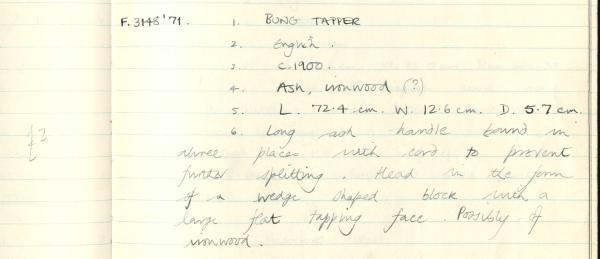 F.3148'71. 1. BUNG TAPPER
2. English.
3. C.1900.
4. Ash, ironwood (?)
5. L. 72.4 cm. W. 12.6 cm. D. 5.7 cm.
6. Long ash handle bound in
three places with cord to prevent
further splitting. Head in the form
of a wedge shaped block with a
large flat tapping face. Possibly of
ironwood.
£2